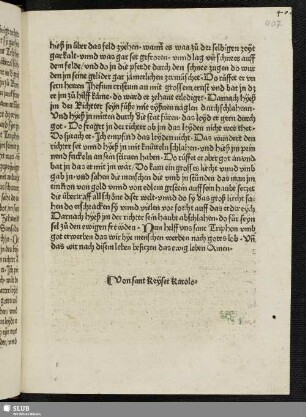 hieß jn über das feld zyehen· wann es was zů der selbigen zeyt
gar kalt· vnnd was gar seer gefroren· vnnd lag vil schnees auff
dem felde· vnd do jn die pferde durch den schnee zugen do wur
den jm seine gelider gar jämerlichen zermüschet· Do růffet er vn
sern herren Jhesum cristum an mit grossem ernst vnd bat jn dz
er jm zů hilff käme· do ward er zehant erlediget· Darnach hyeß
jm der Richter seyn füsse mit spitzen näglen durchschlahenn·
Vnd hyeß jn mitten durch die stat füren· das leyd er gern durch
got· Do fraget jn der richter ob jm das leyden nicht wee thet·
Do sprach er· Jch empfind des leydens nit· Das wundert den
richter vnd hyeß jn mit knütteln schlahen· vnd hieß jm prin
nend fackeln an sein seitten haben· Do růffet er aber got an vnd
bat jn das er mit jm wär· Do kam ein grosses liecht vnnd vmb
gab jn· vnd sahen die menschen dar vnd jn stunden das man jm
ein kron von gold vnnd von edlem gestein auff sein haubt setzet
die überträff all schöne diser welt· vnnd do sy das groß liecht sa-
hen do erschracken sy vnnd vielen vor forcht auff das erdtreych
Darnach hyeß jm der richter sein haubt abschlahen· do für seyn
sel zů den ewigen freüden· Nun helff vns sant Triphon vmb
got erwerben das wir hye menschen werden nach gots lob· Vñ
das wir nach disem leben besitzen das ewig leben Amen·
¶Von sant Keyser Karolo·
407
SLUB
Wir führen Wissen.